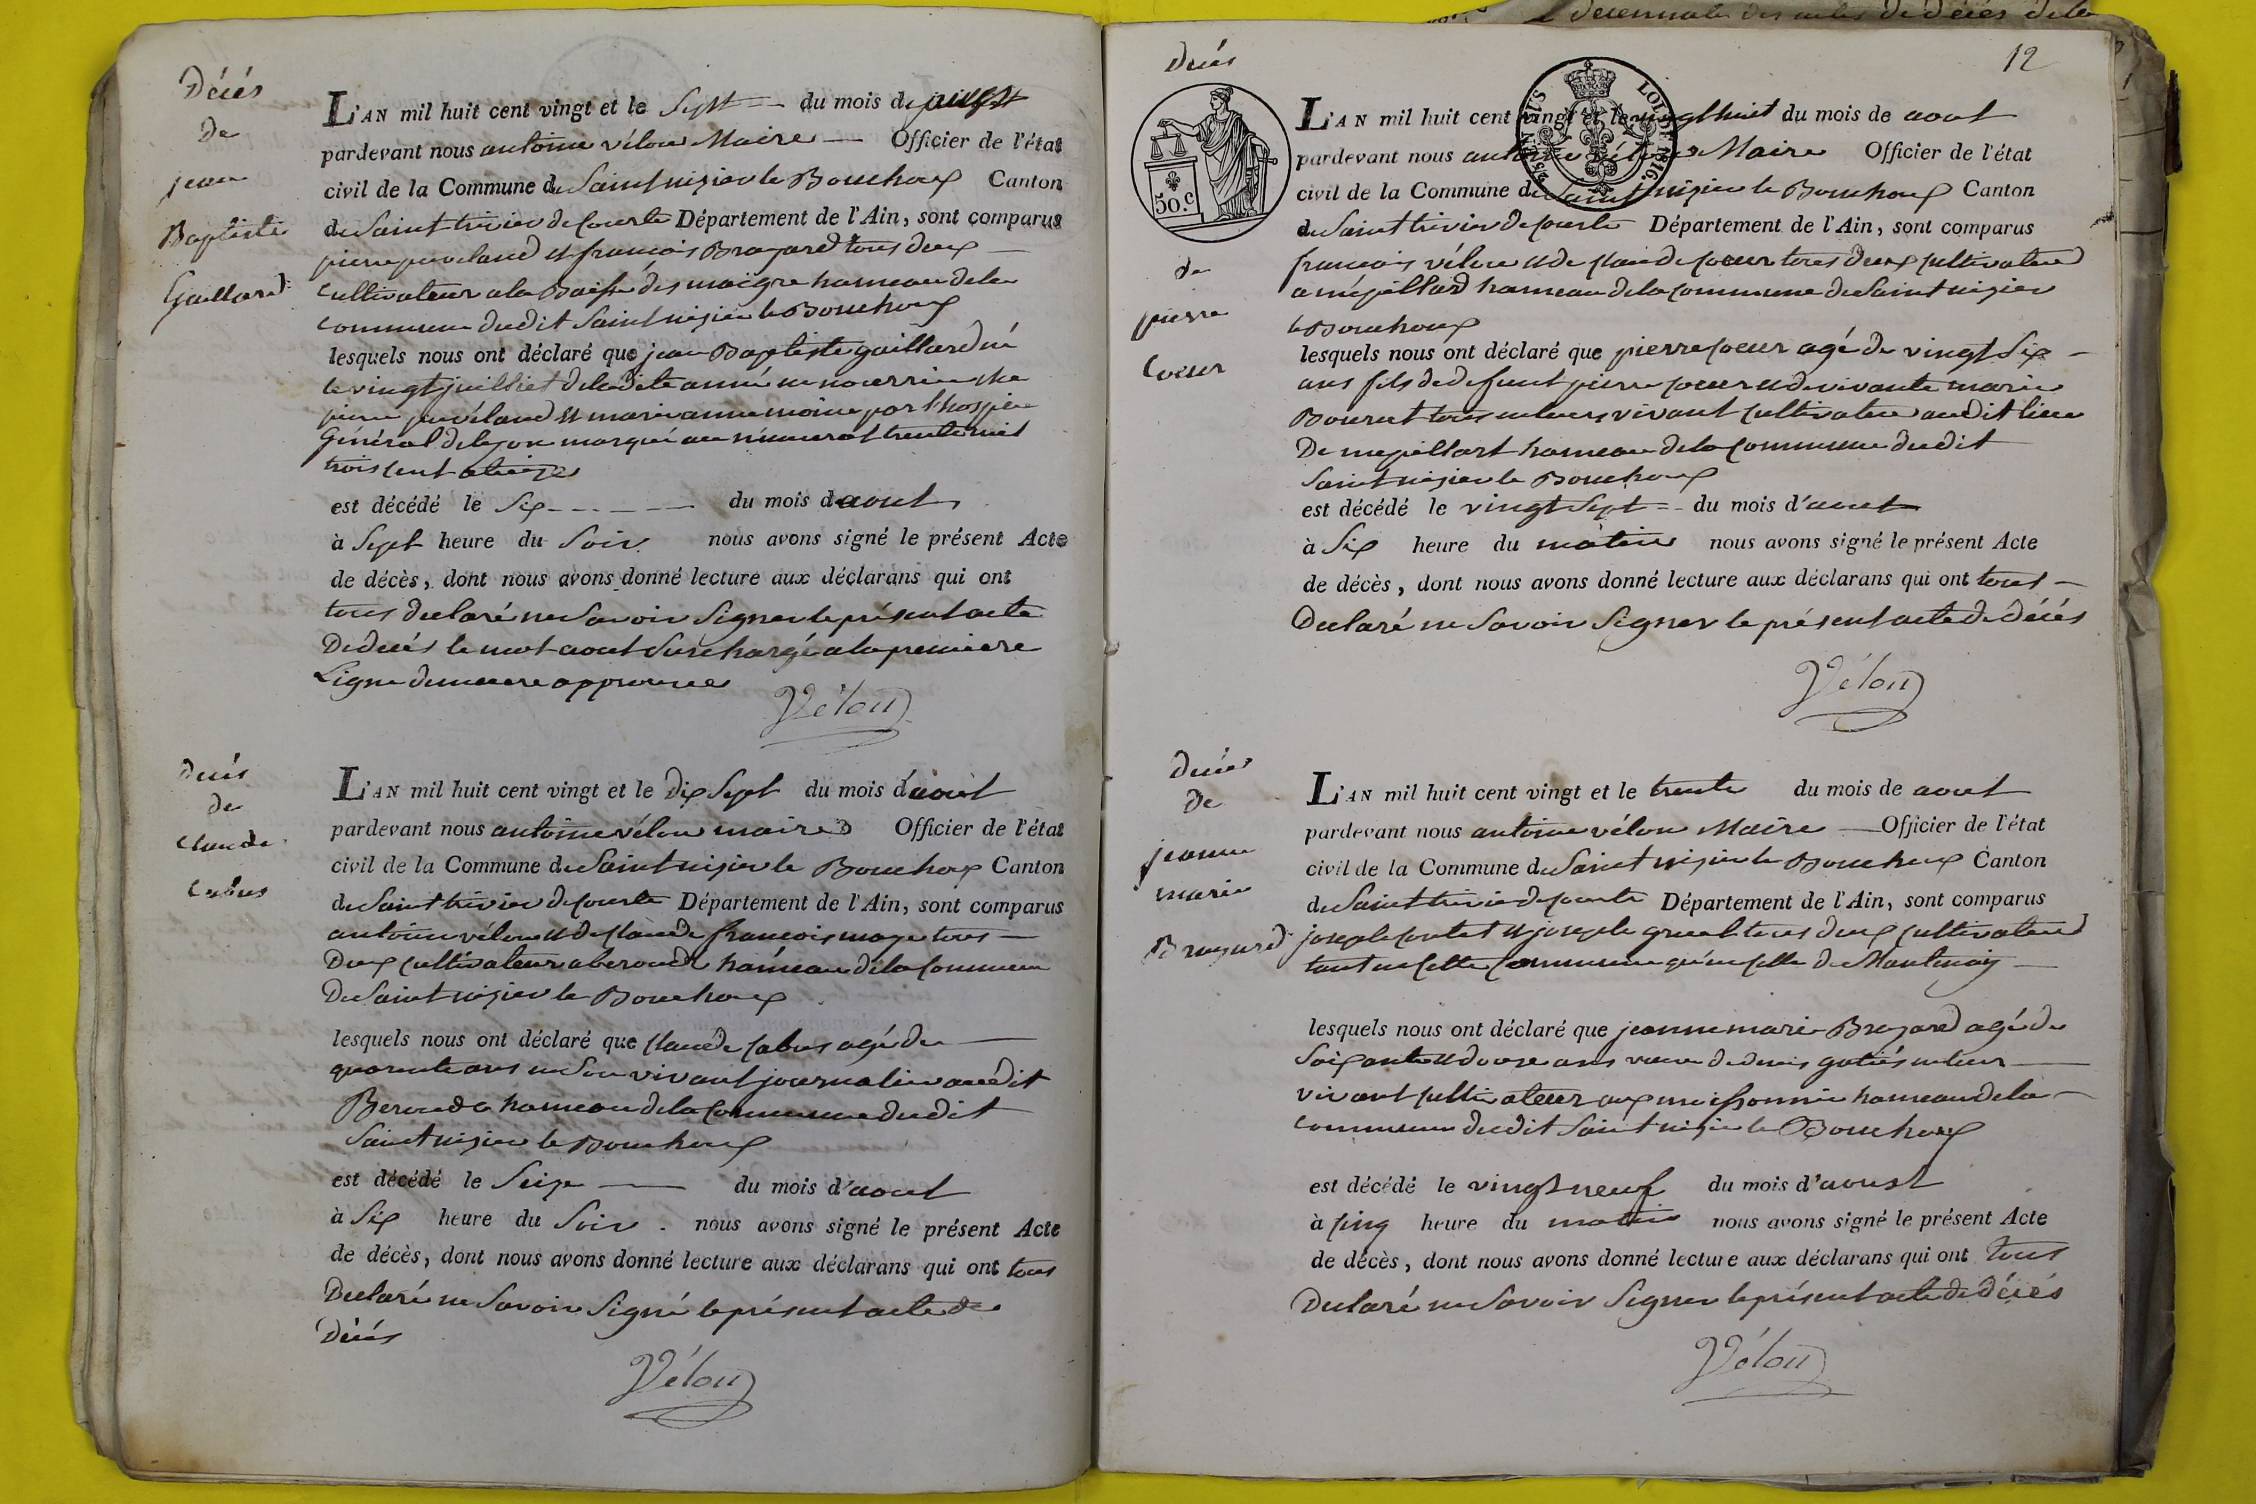 Décés
de
jean
Baptiste
Gaillard
L'AN mil huit cent vingt et le Sept du mois de
pardevant nous antoine vélon Maire — Officier de l'état
civil de la Commune de Saint nizier le Bouchoux Canton
de Saint trivier de Courte Département de l'Ain, sont comparus
pierre et françois Brayard tous deux
Cultivateur a la des maigre hameau de la
Commune dudit Saint nizier le Bouchoux
lesquels nous ont déclaré que jean Baptiste gaillard né
le vingt juilliet de la dite année en nourrice chez
pierre et marie anne moine par l'hospice
Général de lyon marqué au numerot trente mil
trois cent
est décédé le Six du mois d'aout
à Sept heure du Soir nous avons signé le présent Acte
de décès, dont nous avons donné lecture aux déclarans qui ont
tous declaré ne Savoir Signer le présent acte
De décés le mot aout Surchargé a la premiere
Ligne approuvé
Vélon
Décés
de
Claude
Cabus
L'AN mil huit cent vingt et le dix Sept du mois d'aout
pardevant nous antoine vélon maire Officier de l'état
civil de la Commune de Saint nizier le Bouchoux Canton
de Saint trivier de Courte Département de l'Ain, sont comparus
antoine vélon et de Claude françois tous —
Deux Cultivateur a hameau de la Commune
De Saint nizier le Bouchoux
lesquels nous ont déclaré que Claude Cabus agé de —
quarante ans en Son vivant journalier audit
hameau de la Commune dudit
Saint nizier le Bouchoux
est décédé le Seize — du mois d'aout
à Six heure du Soir. nous avons signé le présent Acte
de décès, dont nous avons donné lecture aux déclarans qui ont tous
Declaré ne Savoir Signé le présent acte de
Décés
Vélon
12
Décés
de
pierre
Coeur
50.C
LOI DE 1816.
L'AN mil huit cent vingt et le vingt huit du mois de aout
pardevant nous antoine vélon Maire Officier de l'état
civil de la Commune de Saint nizier le Bouchoux Canton
de Saint trivier de Courte Département de l'Ain, sont comparus
françois vélon et de Claude Coeur tous deux Cultivateur
a hameau de la Commune de Saint nizier
le Bouchoux
lesquels nous ont déclaré que pierre Coeur agé de vingt Six —
ans fils de defunt pierre Coeur et de vivante marie
tous en leurs vivant Cultivateur audit lieu
De hameau de la Commune dudit
Saint nizier le Bouchoux
est décédé le vingt Sept du mois d'aout
à Six heure du matin nous avons signé le présent Acte
de décès, dont nous avons donné lecture aux déclarans qui ont tous —
Declaré ne Savoir Signer le présent acte de décés
Vélon
Décés
de
jeanne
marie
Brayard
L'AN mil huit cent vingt et le trente du mois de aout
pardevant nous antoine vélon Maire — Officier de l'état
civil de la Commune de Saint nizier le Bouchoux Canton
de Saint trivier de Courte Département de l'Ain, sont comparus
joseph et joseph tous deux Cultivateur
tant en Cette Commune qu'en Celle de Mantenay —
lesquels nous ont déclaré que jeanne marie Brayard agé de
Soixante et douze ans veuve de denis en leur —
vivant Cultivateur aux hameau de la —
Commune dudit Saint nizier le Bouchoux
est décédé le vingt neuf du mois d'aoust
à Cinq heure du matin nous avons signé le présent Acte
de décès, dont nous avons donné lecture aux déclarans qui ont tous
Declaré ne Savoir Signer le présent acte de décés
Vélon